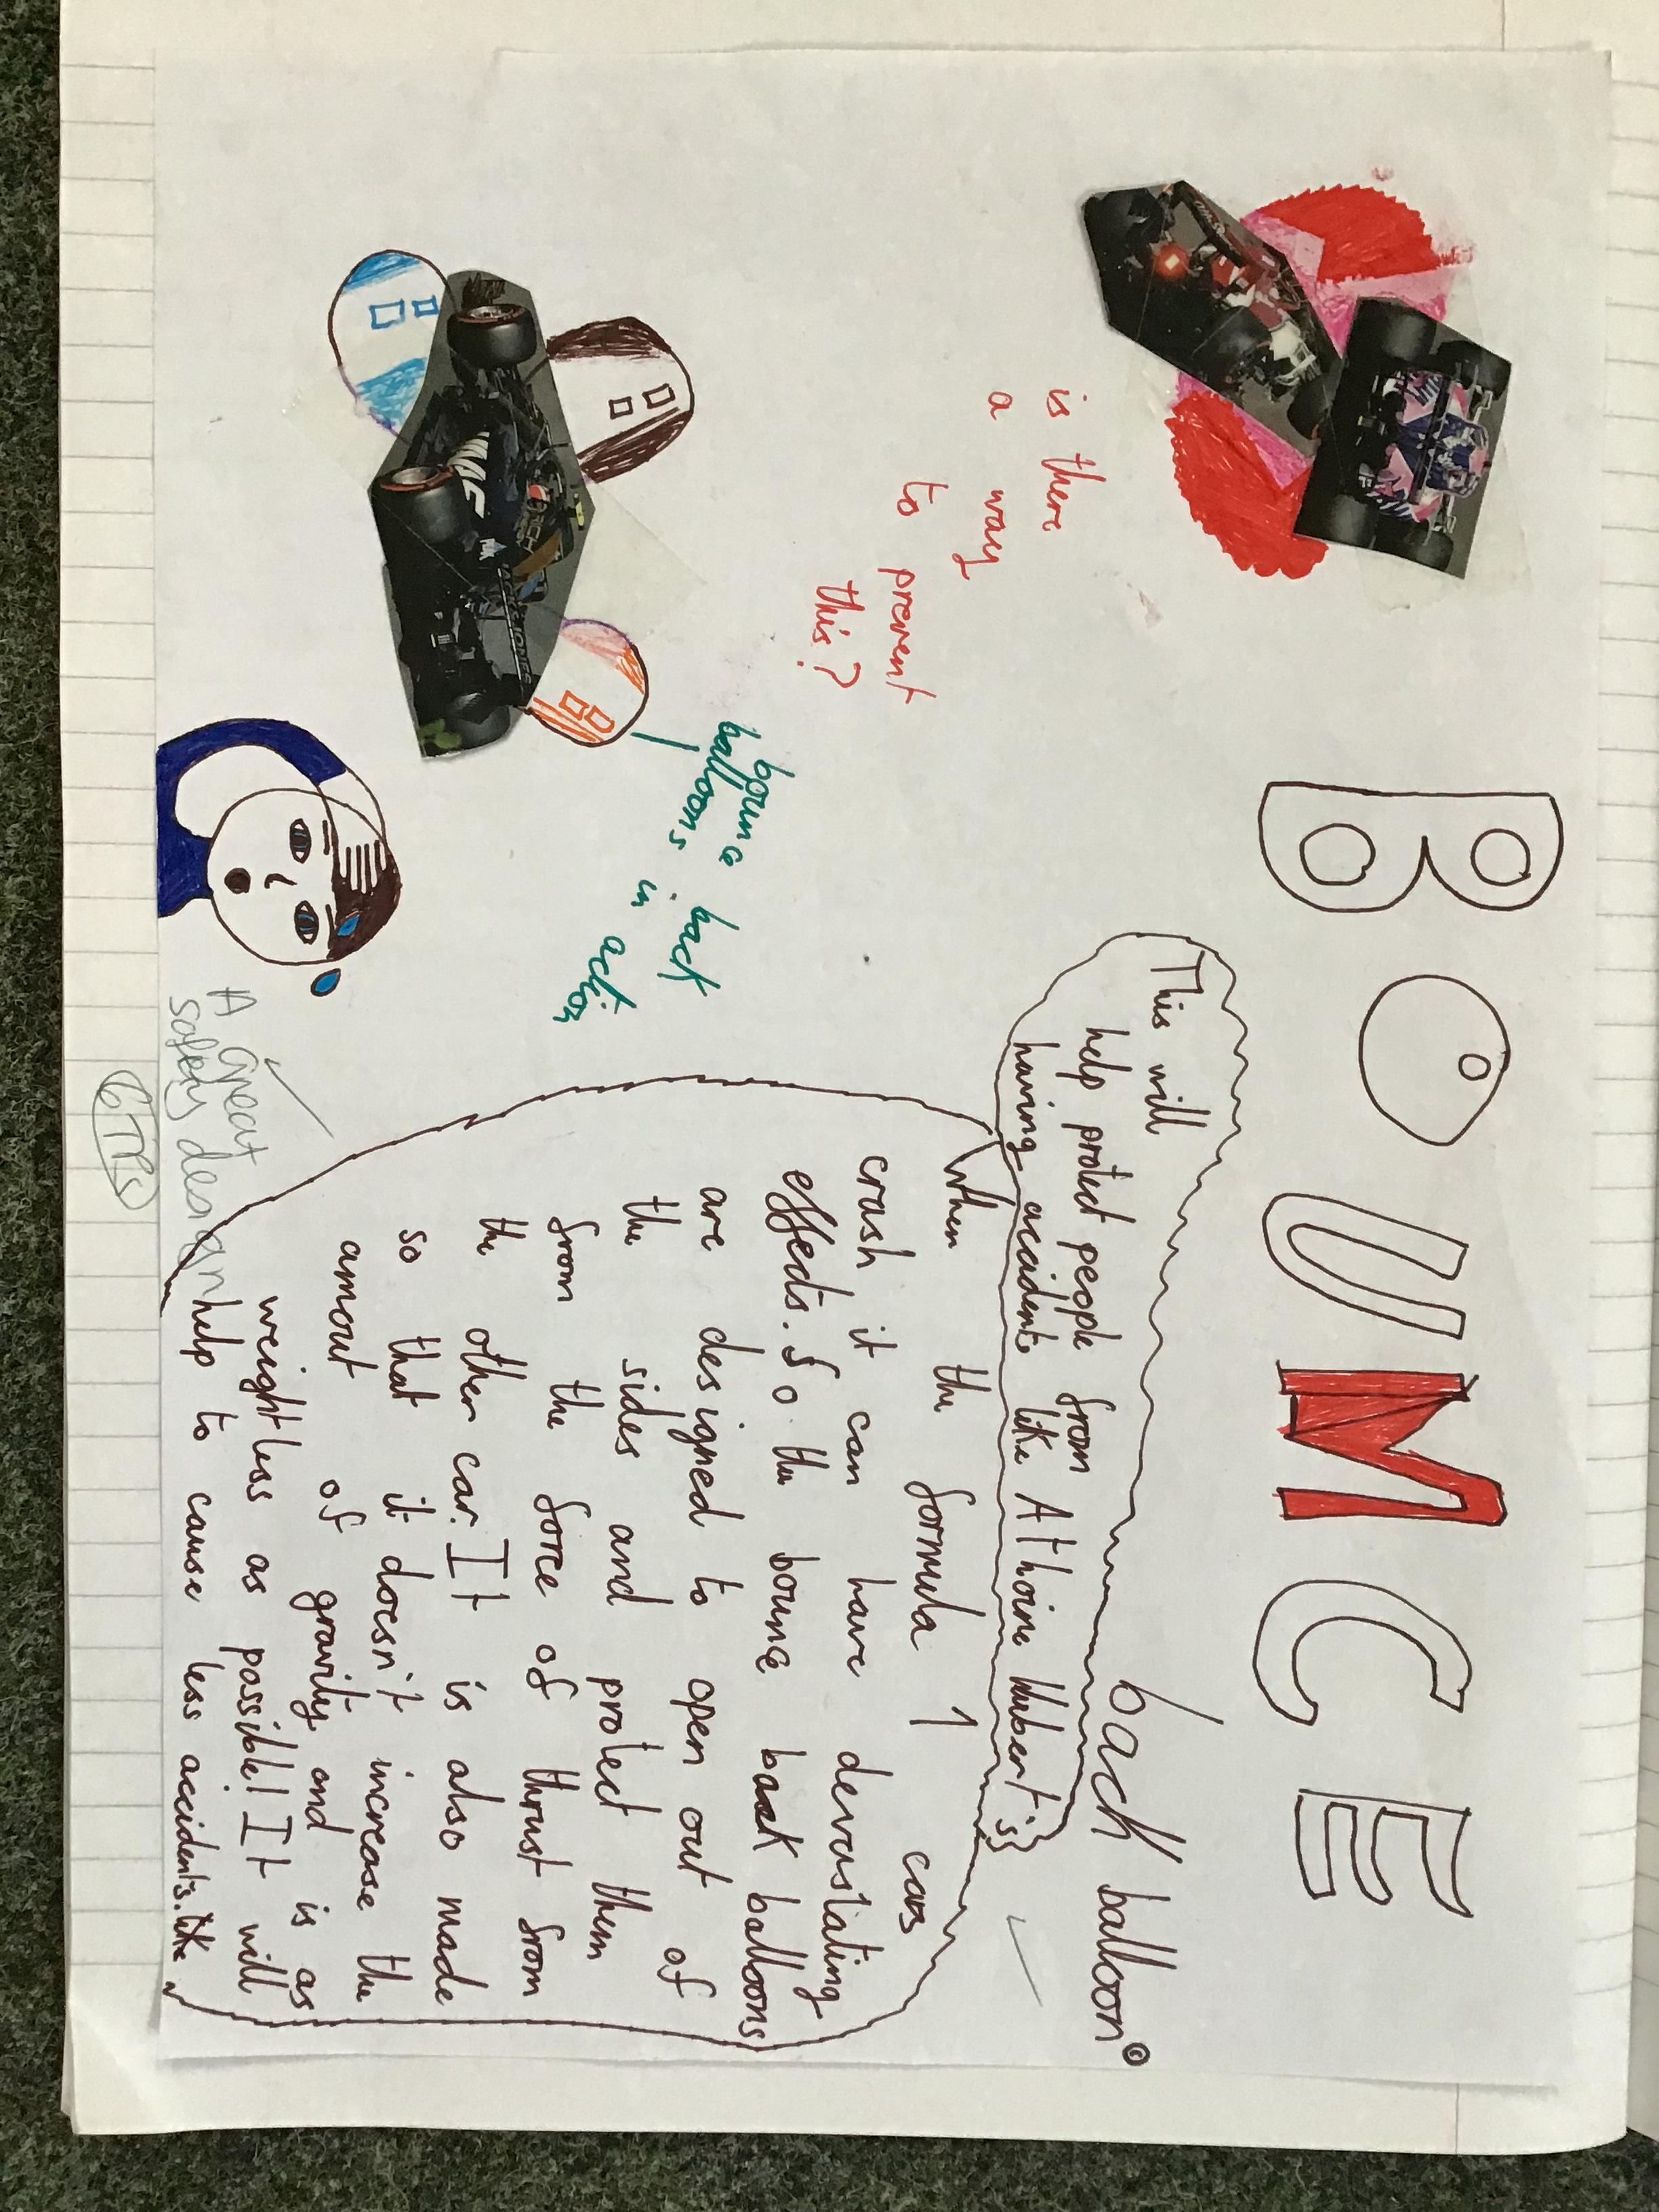 BOUMCE
back balloon©
is there
a way
to prevent
this?
This will
help protect people from
having accidents like Athoine Hubert's
bounce back
balloons in action
When the formula 1 cars
crash it can have devastating
effects. So the bounce back balloons
are designed to open out of
the sides and protect them
from the force of thrust from
the other car. It is also made
so that it doesn't increase the
amout of gravity and is as
weightless as possible! It will
help to cause less accidents like
A great
safety design
6TPs